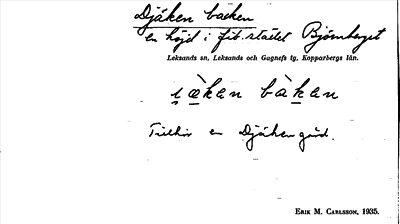 Djäken backen
en höjd i fäb.stället Björnberget
Leksands sn, Leksands och Gagnefs tg, Kopparbergs län.
bàkan
Tillhör en Djäkengård.
ERIK M. CARLSSON, 1935.